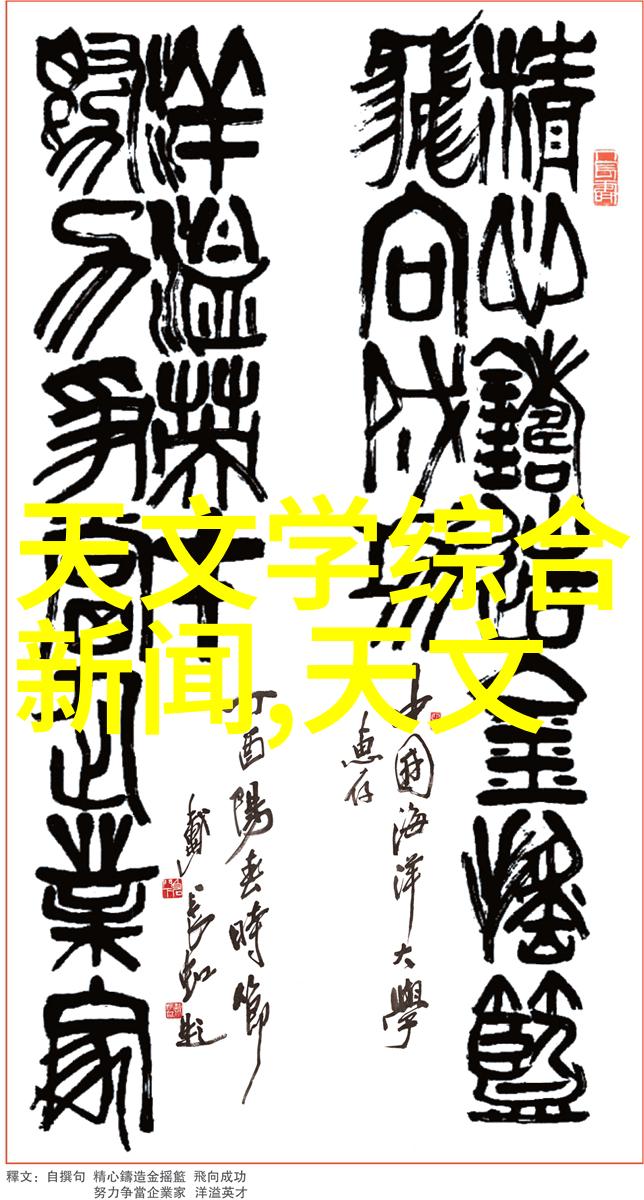 精心鑄造金摇籃
飛向成功
中國海洋大學
惠存
努力争當企業家
洋溢英才
丁酉陽春時節
戴長虹題
天文学综合
新闻,天文
釋文：自撰句 精心鑄造金摇籃 飛向成功
努力争當企業家 洋溢英才